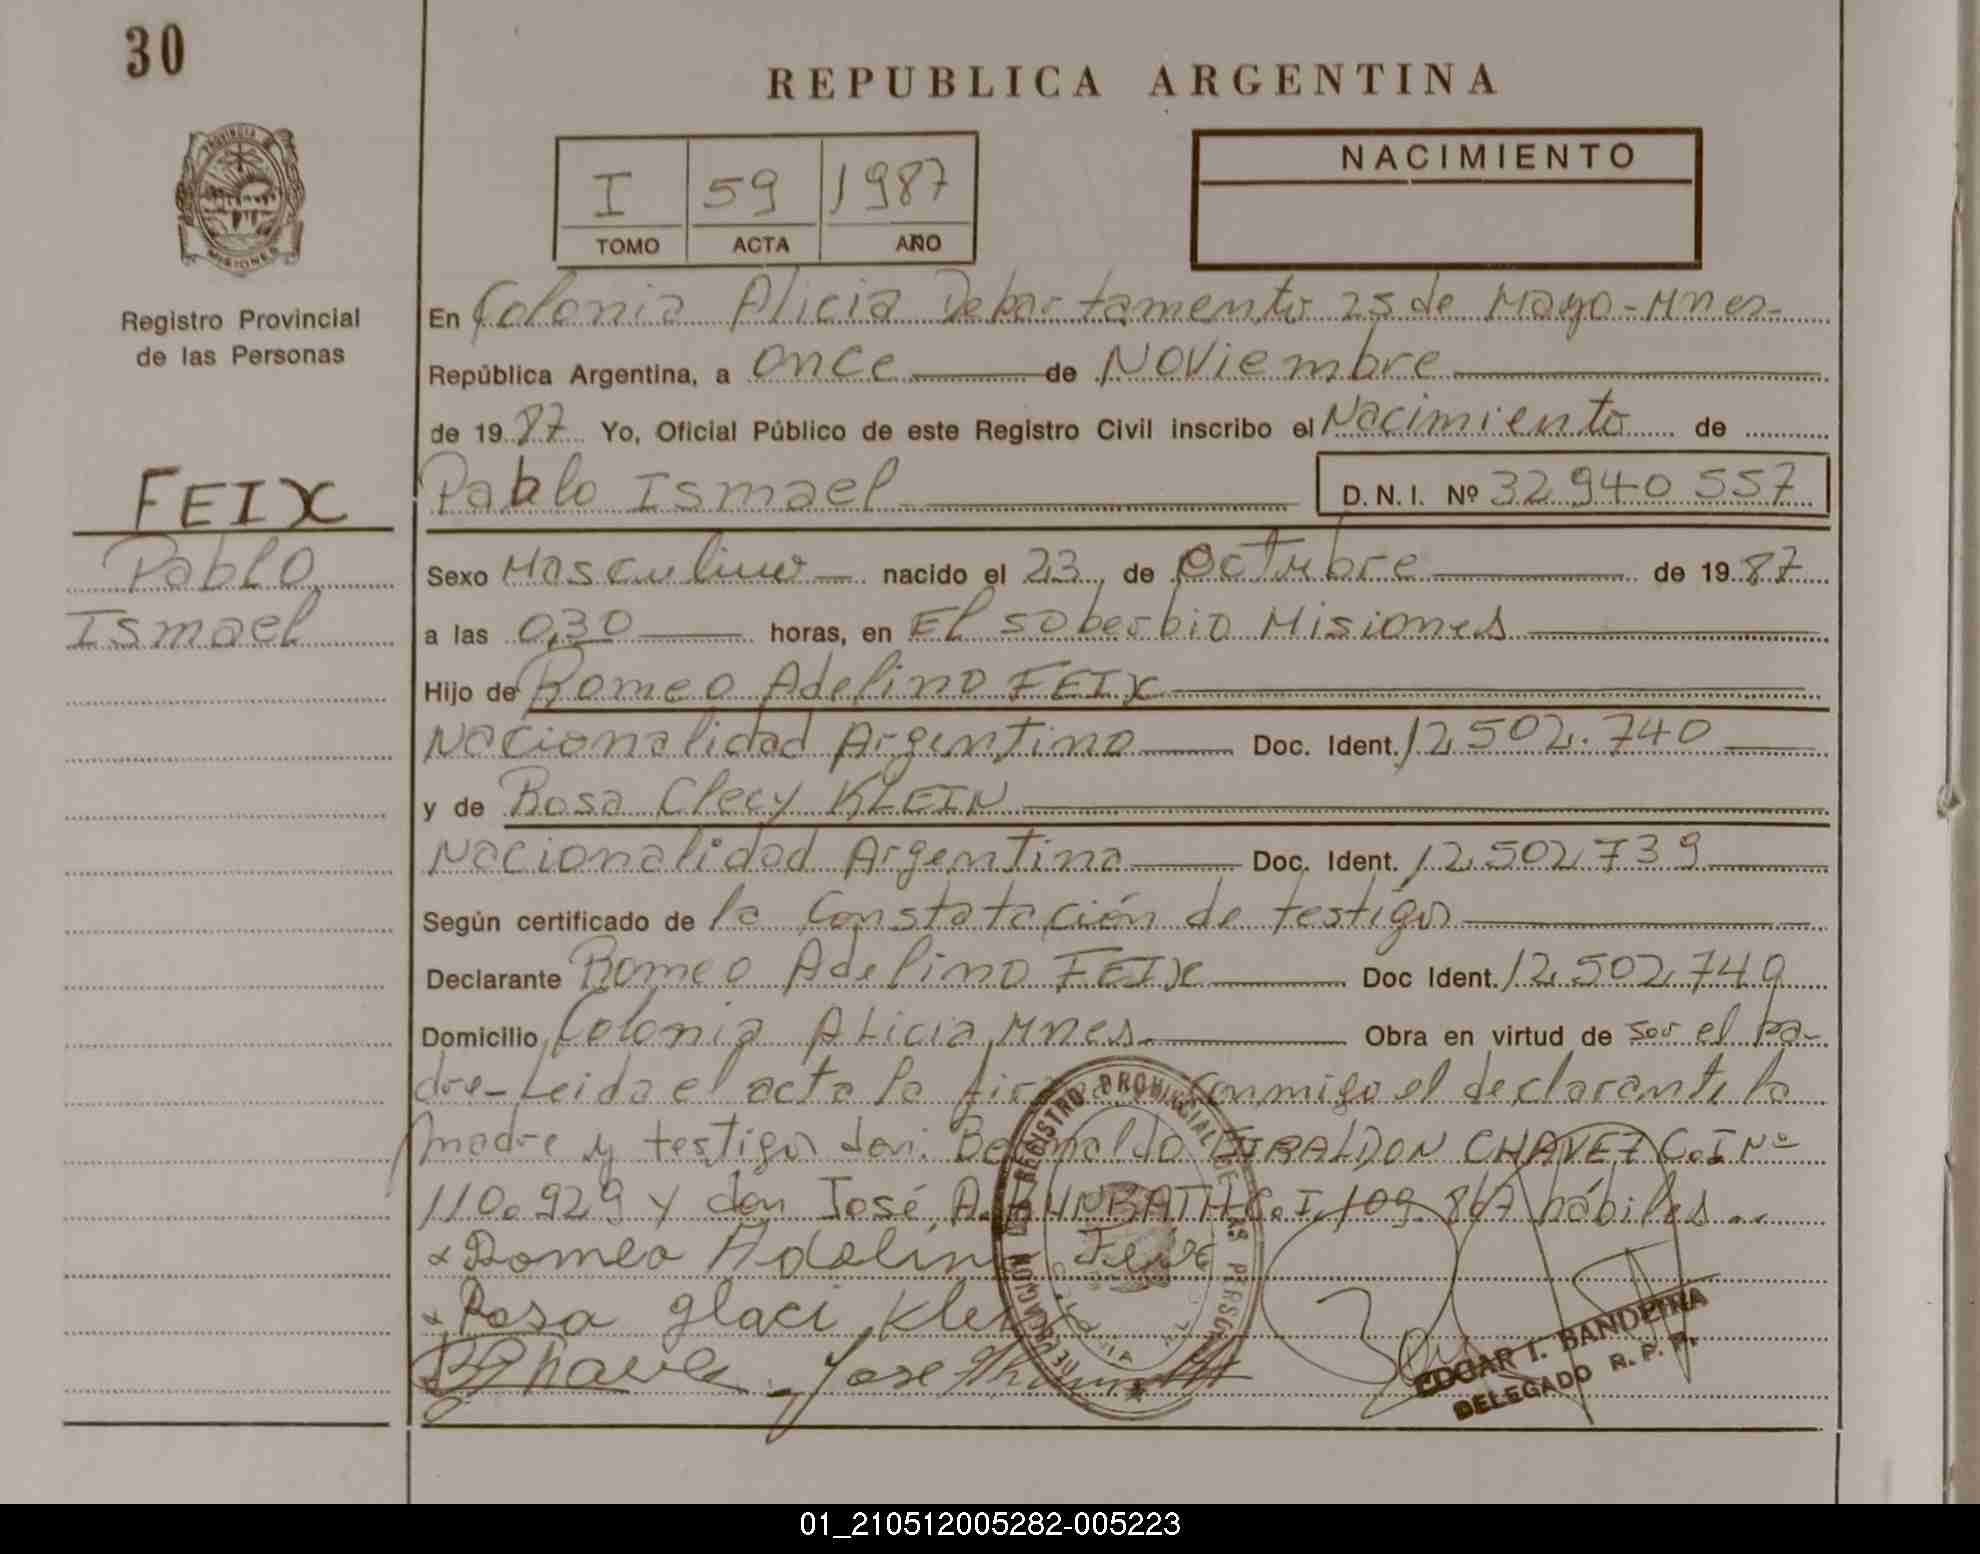 30
REPUBLICA ARGENTINA
PROVINCIA DE
MISIONES
Registro Provincial
de las Personas
I 59 1987
TOMO ACTA AÑO
NACIMIENTO
En Colonia Alicia Departamento 25 de Mayo-Mnes-
República Argentina, a once de Noviembre
de 1987 Yo, Oficial Público de este Registro Civil inscribo el Nacimiento de
Pablo Ismael D.N.I. Nº 32940557
FEIX
Pablo
Ismael
Sexo Masculino nacido el 23 de Octubre de 1987
a las 0,30 horas, en El soberbio Misiones
Hijo de Romeo Adelino FEIX
Nacionalidad Argentino Doc. Ident. 12502.740
y de Rosa Clecy KLEIN
Nacionalidad Argentina Doc. Ident. 12502739
Según certificado de la Constatación de testigos
Declarante Romeo Adelino FEIX Doc Ident. 12502740
Domicilio Colonia Alicia Mnes. Obra en virtud de ser el pa-
dre-Leida el acta la firma conmigo el declarante la
madre y testigos don: GIRALDON CHAVEZ C.I Nº
110.929 y don José A. C.I. 109.867 hábiles..
x Romeo Adelino Feix
x Rosa glaci Klein
BChavez Jose
REGISTRO PROVINCIAL DE LAS PERSONAS
EDGAR I. BANDEIRA
DELEGADO R. P. P.
01_210512005282-005223